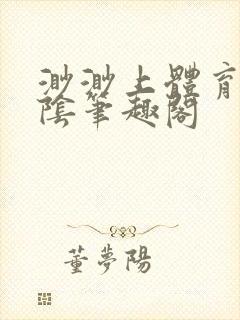 渺渺上體育
陰筆趣閣
董夢陽